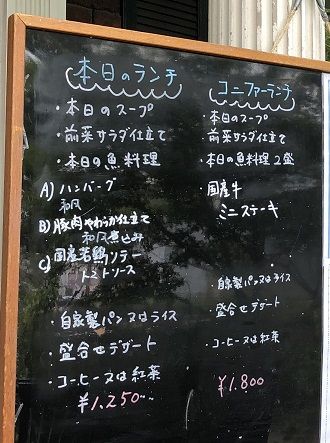 本日のランチ
・本日のスープ
・前菜サラダ仕立て
・本日の魚料理
A) ハンバーグ
和風
B) 豚肉やわらか仕立て
和風煮込み
C) 国産若鶏ソテー
トマトソース
・自家製パン又はライス
・盛合せデザート
・コーヒー又は紅茶
¥1,250
コニファーランチ
・本日のスープ
・前菜サラダ仕立て
・本日の魚料理2盛
・国産牛
ミニステーキ
・自家製パン又はライス
・盛合せデザート
・コーヒー又は紅茶
¥1,800